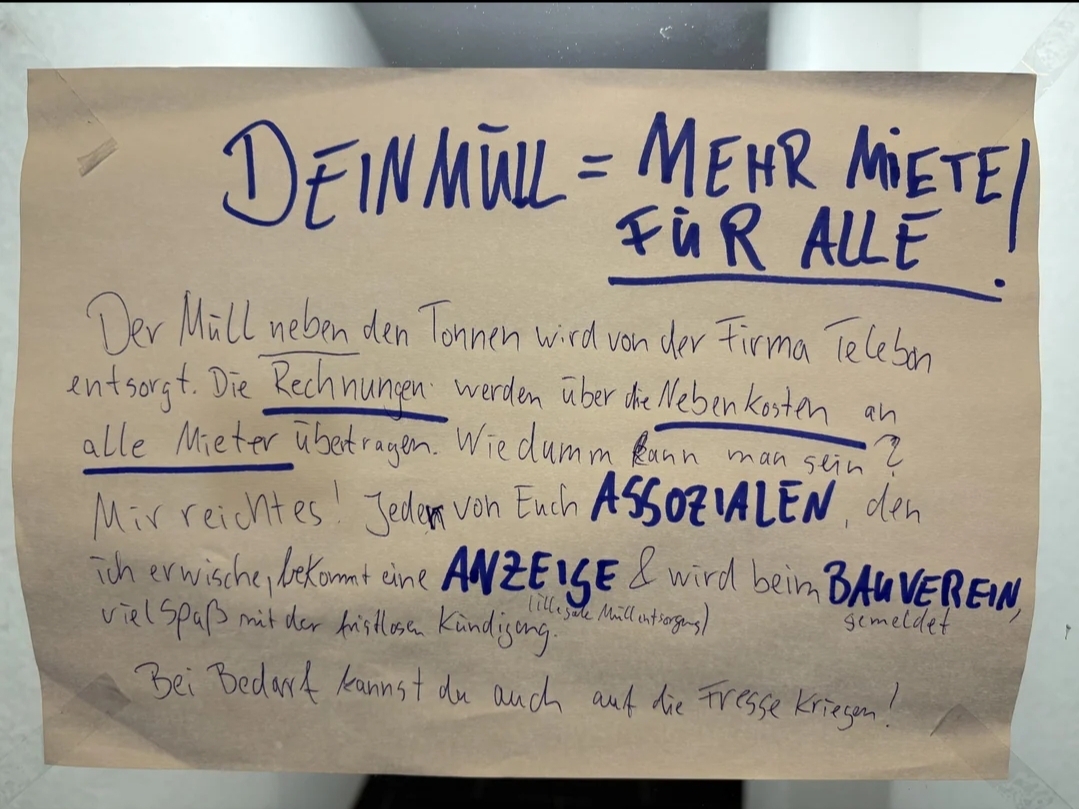 DEIN MÜLL = MEHR MIETE
FÜR ALLE!
Der Müll neben den Tonnen wird von der Firma Telebon
entsorgt. Die Rechnungen werden über die Nebenkosten an
alle Mieter übertragen. Wie dumm kann man sein?
Mir reicht es! Jeder von Euch ASSOZIALEN, den
ich erwische, bekommt eine ANZEIGE & wird beim BAUVEREIN,
(illegale Müllentsorgung) gemeldet
viel Spaß mit der fristlosen Kündigung.
Bei Bedarf kannst du auch auf die Fresse kriegen!